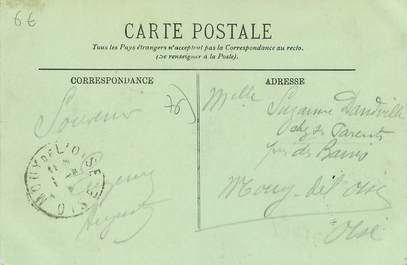 6€
CARTE POSTALE
Tous les Pays étrangers n'acceptent pas la Correspondance au recto.
(Se renseigner à la Poste).
CORRESPONDANCE
ADRESSE
76)
Souvenir
Melle Suzanne
chez ses Parents
près des Bains
Mouy-de-l'Oise
Oise
MOUY DE L'OISE